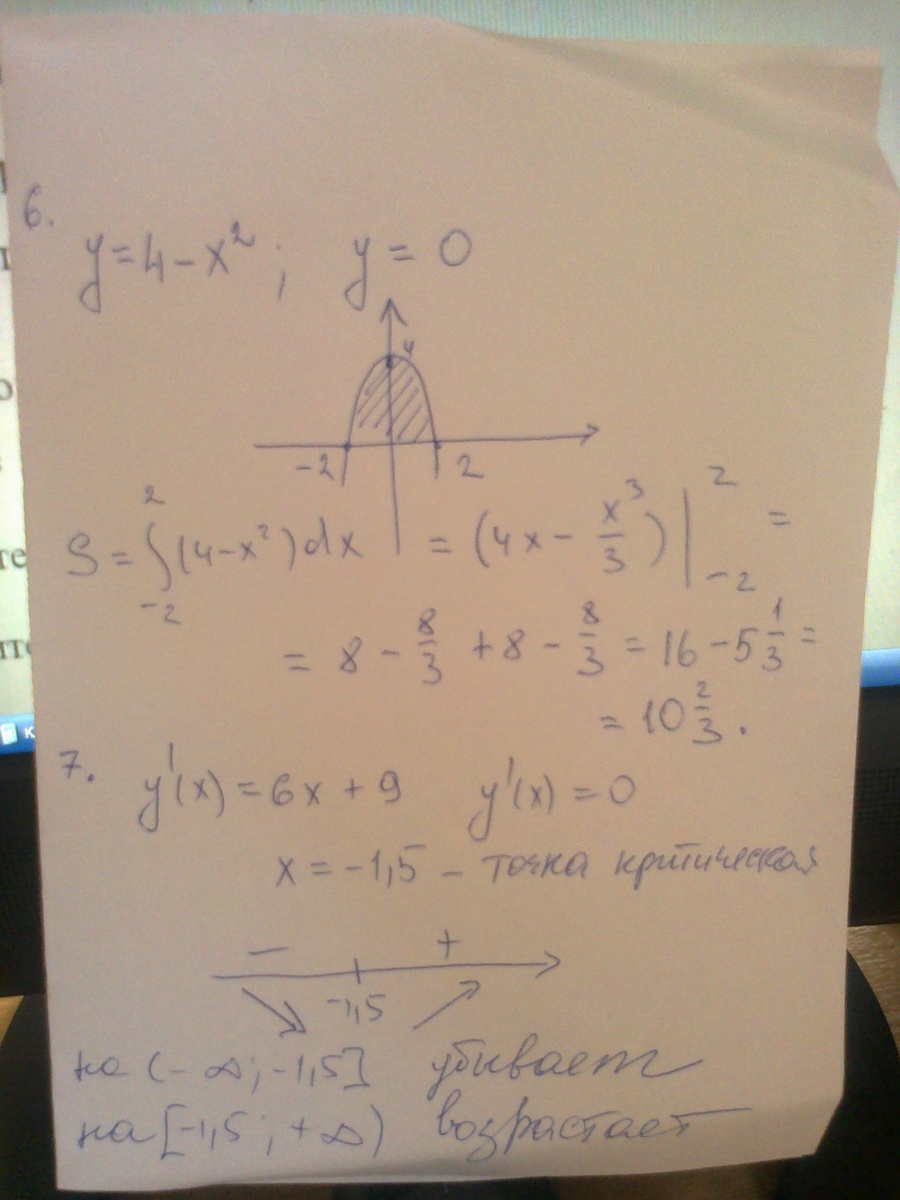 6.
y=4-x²; y=0
4
-2 2
S=∫₋₂²(4-x²)dx = (4x - x³/3)|₋₂² =
= 8 - 8/3 + 8 - 8/3 = 16 - 5 1/3 =
= 10 2/3.
7. y'(x) = 6x + 9 y'(x) = 0
x = -1,5 - точка критическая
- +
-1,5
на (-∞; -1,5] убывает
на [-1,5; +∞) возрастает